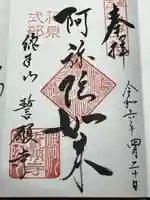 奉拝
令和六年四月二十日
阿弥陀如来
和泉
式部
総本山 誓願寺